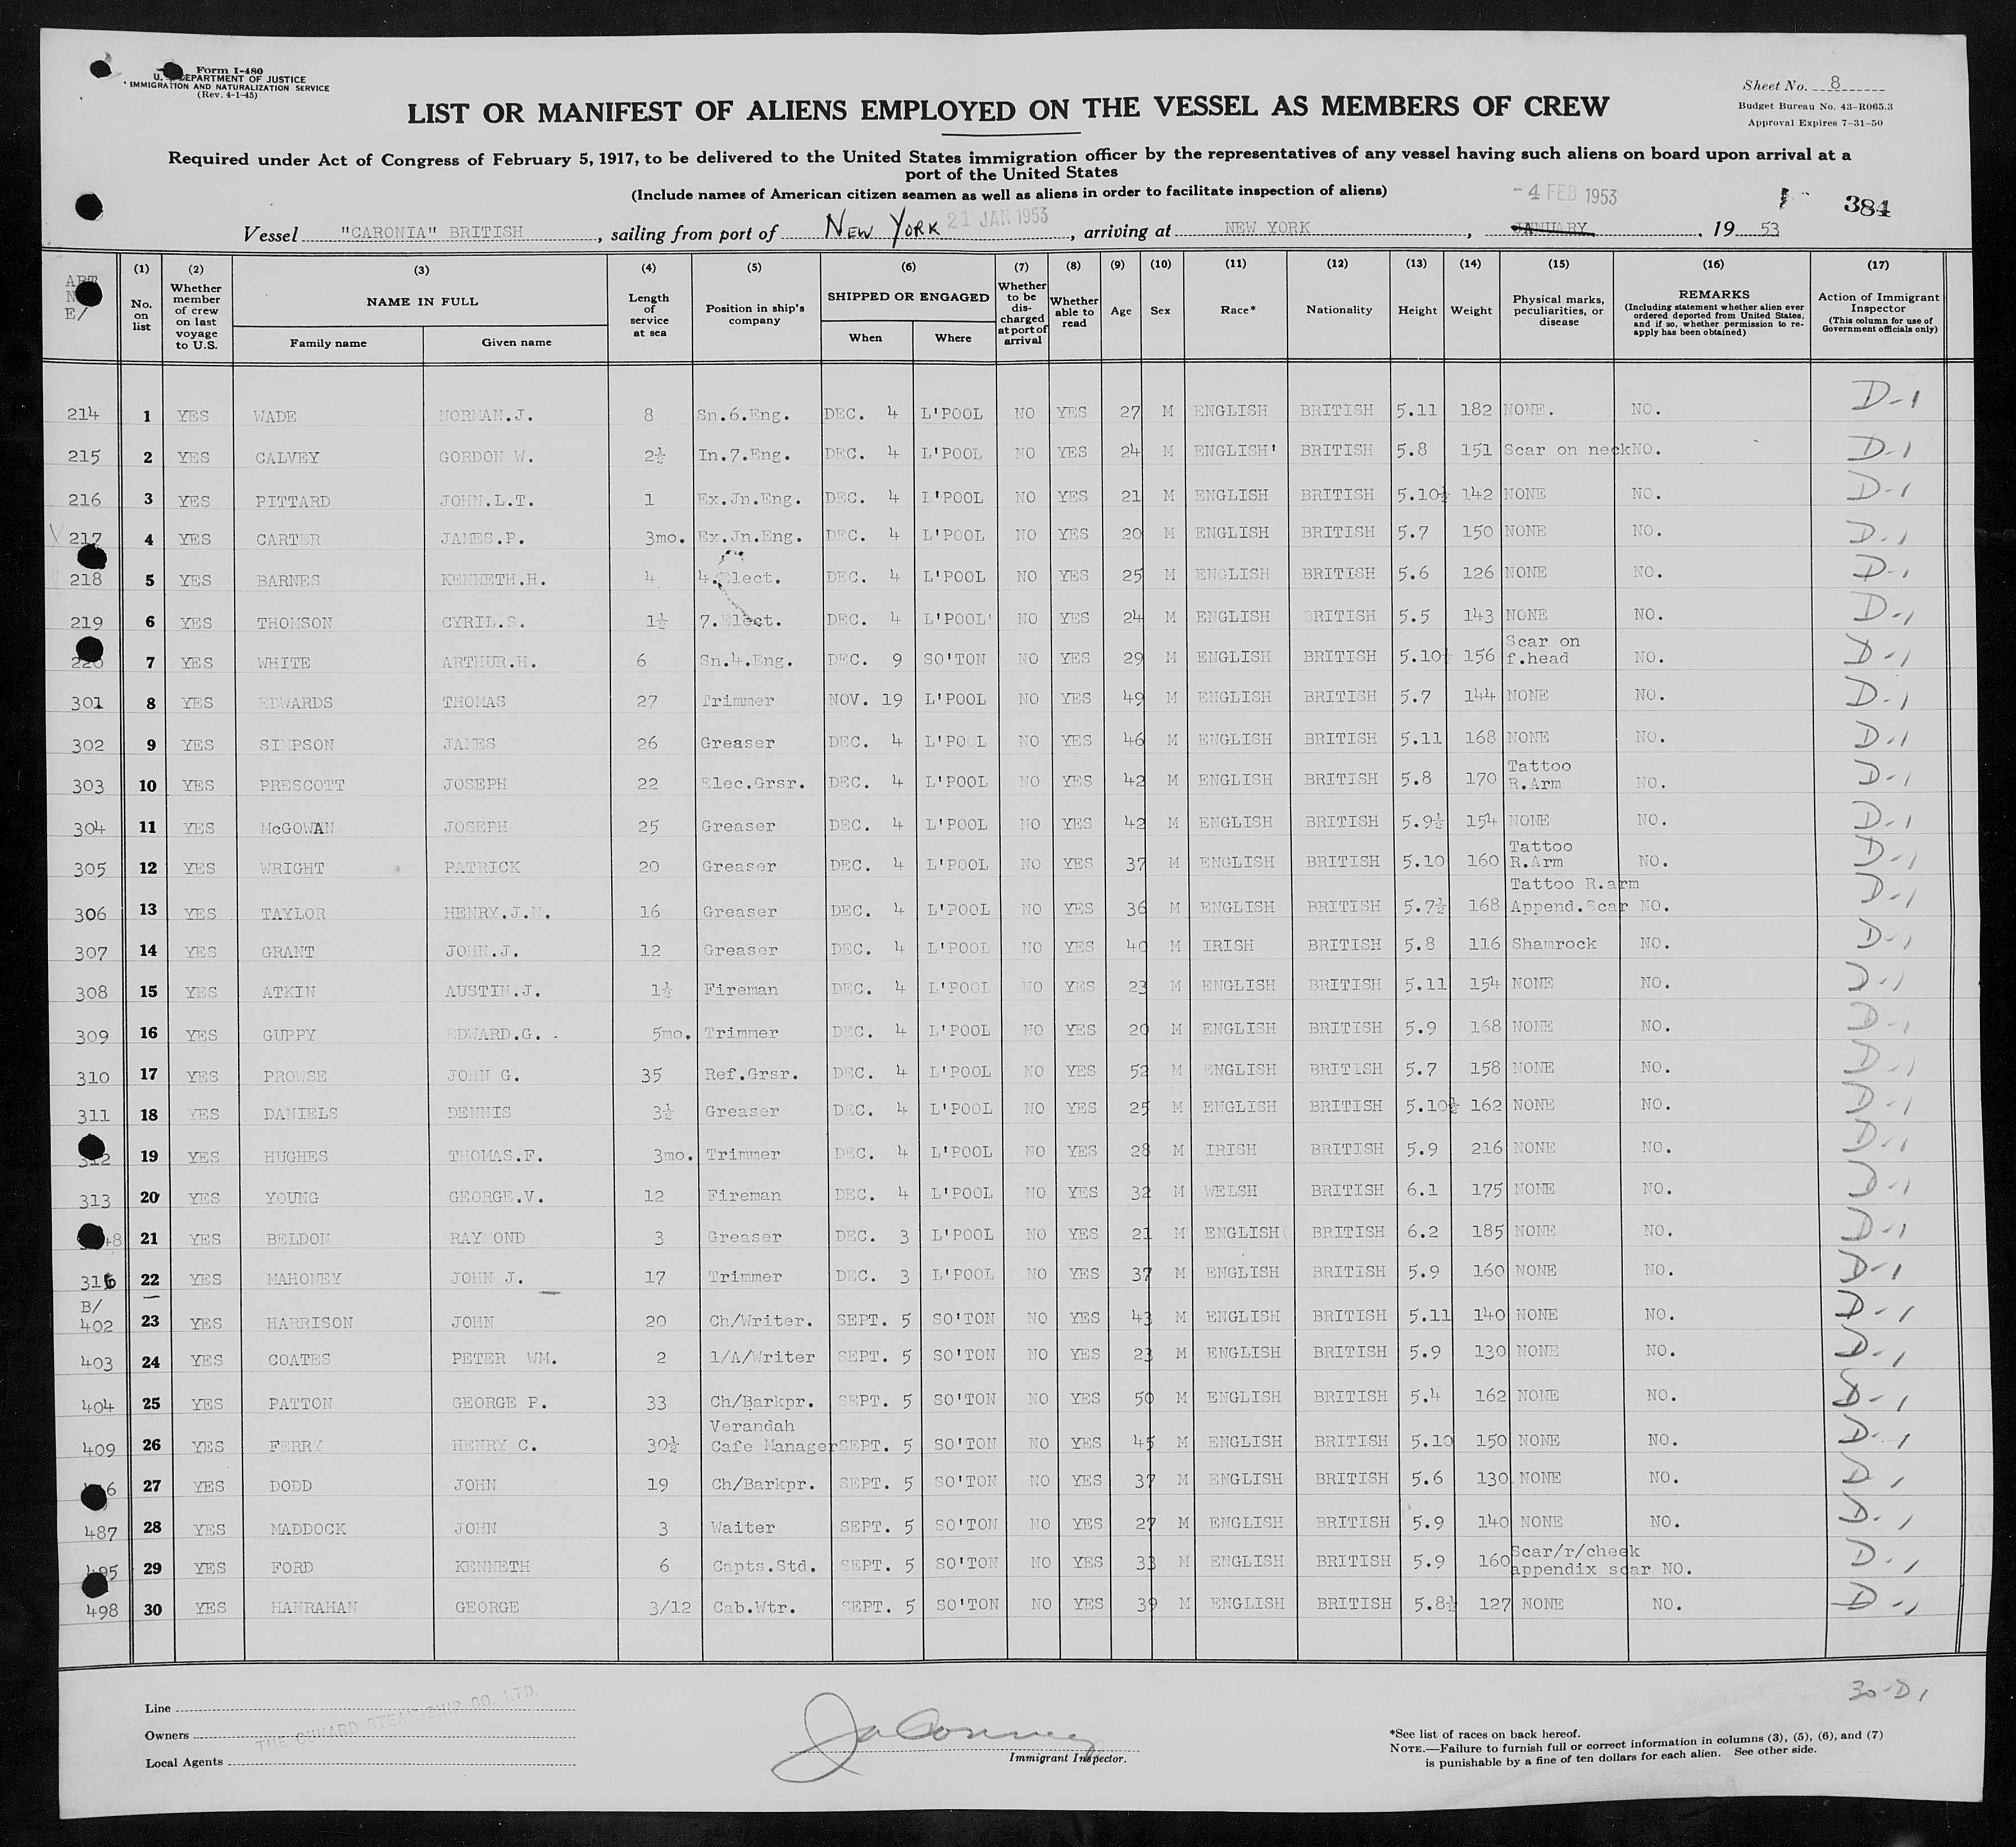 Form I-480
U. S. DEPARTMENT OF JUSTICE
IMMIGRATION AND NATURALIZATION SERVICE
(Rev. 4-1-45)
Sheet No. 8
Budget Bureau No. 43-R065.3
Approval Expires 7-31-50
LIST OR MANIFEST OF ALIENS EMPLOYED ON THE VESSEL AS MEMBERS OF CREW
Required under Act of Congress of February 5, 1917, to be delivered to the United States immigration officer by the representatives of any vessel having such aliens on board upon arrival at a
port of the United States
(Include names of American citizen seamen as well as aliens in order to facilitate inspection of aliens)
- 4 FEB 1953
384
Vessel "CARONIA" BRITISH, sailing from port of NEW YORK 21 JAN 1953, arriving at NEW YORK, JANUARY, 1953
ART
E/
(1) No. on list (2) Whether member of crew on last voyage to U.S. (3) NAME IN FULL Family name Given name (4) Length of service at sea (5) Position in ship's company (6) SHIPPED OR ENGAGED When Where (7) Whether to be discharged at port of arrival (8) Whether able to read (9) Age (10) Sex (11) Race* (12) Nationality (13) Height (14) Weight (15) Physical marks, peculiarities, or disease (16) REMARKS (Including statement whether alien ever ordered deported from United States, and if so, whether permission to re-apply has been obtained) (17) Action of Immigrant Inspector (This column for use of Government officials only)
214 1 YES WADE NORMAN.J. 8 Sn.6.Eng. DEC. 4 L'POOL NO YES 27 M ENGLISH BRITISH 5.11 182 NONE. NO. D-1
215 2 YES CALVEY GORDON W. 2½ In.7.Eng. DEC. 4 L'POOL NO YES 24 M ENGLISH' BRITISH 5.8 151 Scar on neck NO. D-1
216 3 YES PITTARD JOHN.L.T. 1 Ex.Jn.Eng. DEC. 4 L'POOL NO YES 21 M ENGLISH BRITISH 5.10½ 142 NONE NO. D-1
217 4 YES CARTER JAMES.P. 3mo. Ex.Jn.Eng. DEC. 4 L'POOL NO YES 20 M ENGLISH BRITISH 5.7 150 NONE NO. D-1
218 5 YES BARNES KENNETH.H. 4 4.Elect. DEC. 4 L'POOL NO YES 25 M ENGLISH BRITISH 5.6 126 NONE NO. D-1
219 6 YES THOMSON CYRIL.S. 1½ 7.Elect. DEC. 4 L'POOL' NO YES 24 M ENGLISH BRITISH 5.5 143 NONE NO. D-1
220 7 YES WHITE ARTHUR.H. 6 Sn.4.Eng. DEC. 9 SO'TON NO YES 29 M ENGLISH BRITISH 5.10½ 156 Scar on f.head NO. D-1
301 8 YES EDWARDS THOMAS 27 Trimmer NOV. 19 L'POOL NO YES 49 M ENGLISH BRITISH 5.7 144 NONE NO. D-1
302 9 YES SIMPSON JAMES 26 Greaser DEC. 4 L'POOL NO YES 46 M ENGLISH BRITISH 5.11 168 NONE NO. D-1
303 10 YES PRESCOTT JOSEPH 22 Elec.Grsr. DEC. 4 L'POOL NO YES 42 M ENGLISH BRITISH 5.8 170 Tattoo R.Arm NO. D-1
304 11 YES McGOWAN JOSEPH 25 Greaser DEC. 4 L'POOL NO YES 42 M ENGLISH BRITISH 5.9½ 154 NONE NO. D-1
305 12 YES WRIGHT PATRICK 20 Greaser DEC. 4 L'POOL NO YES 37 M ENGLISH BRITISH 5.10 160 Tattoo R.Arm NO. D-1
306 13 YES TAYLOR HENRY.J.N. 16 Greaser DEC. 4 L'POOL NO YES 36 M ENGLISH BRITISH 5.7½ 168 Tattoo R.arm Append.Scar NO. D-1
307 14 YES GRANT JOHN.J. 12 Greaser DEC. 4 L'POOL NO YES 40 M IRISH BRITISH 5.8 116 Shamrock NO. D-1
308 15 YES ATKIN AUSTIN.J. 1½ Fireman DEC. 4 L'POOL NO YES 23 M ENGLISH BRITISH 5.11 154 NONE NO. D-1
309 16 YES GUPPY EDWARD.G. 5mo. Trimmer DEC. 4 L'POOL NO YES 20 M ENGLISH BRITISH 5.9 168 NONE NO. D-1
310 17 YES PROWSE JOHN G. 35 Ref.Grsr. DEC. 4 L'POOL NO YES 52 M ENGLISH BRITISH 5.7 158 NONE NO. D-1
311 18 YES DANIELS DENNIS 3½ Greaser DEC. 4 L'POOL NO YES 25 M ENGLISH BRITISH 5.10½ 162 NONE NO. D-1
312 19 YES HUGHES THOMAS.F. 3mo. Trimmer DEC. 4 L'POOL NO YES 28 M IRISH BRITISH 5.9 216 NONE NO. D-1
313 20 YES YOUNG GEORGE.V. 12 Fireman DEC. 4 L'POOL NO YES 32 M WELSH BRITISH 6.1 175 NONE NO. D-1
21 YES BELDON RAY OND 3 Greaser DEC. 3 L'POOL NO YES 21 M ENGLISH BRITISH 6.2 185 NONE NO. D-1
316 22 YES MAHONEY JOHN J. 17 Trimmer DEC. 3 L'POOL NO YES 37 M ENGLISH BRITISH 5.9 160 NONE NO. D-1
B/
402 23 YES HARRISON JOHN 20 Ch/Writer. SEPT. 5 SO'TON NO YES 43 M ENGLISH BRITISH 5.11 140 NONE NO. D-1
403 24 YES COATES PETER WM. 2 1/A/Writer SEPT. 5 SO'TON NO YES 23 M ENGLISH BRITISH 5.9 130 NONE NO. D-1
404 25 YES PATTON GEORGE P. 33 Ch/Barkpr. SEPT. 5 SO'TON NO YES 50 M ENGLISH BRITISH 5.4 162 NONE NO. D-1
409 26 YES FERRY HENRY C. 30½ Verandah Cafe Manager SEPT. 5 SO'TON NO YES 45 M ENGLISH BRITISH 5.10 150 NONE NO. D-1
27 YES DODD JOHN 19 Ch/Barkpr. SEPT. 5 SO'TON NO YES 37 M ENGLISH BRITISH 5.6 130 NONE NO. D-1
487 28 YES MADDOCK JOHN 3 Waiter SEPT. 5 SO'TON NO YES 27 M ENGLISH BRITISH 5.9 140 NONE NO. D-1
495 29 YES FORD KENNETH 6 Capts.Std. SEPT. 5 SO'TON NO YES 33 M ENGLISH BRITISH 5.9 160 Scar/r/cheek appendix scar NO. D-1
498 30 YES HANRAHAN GEORGE 3/12 Cab.Wtr. SEPT. 5 SO'TON NO YES 39 M ENGLISH BRITISH 5.8½ 127 NONE NO. D-1
30-D1
Line
Owners THE CUNARD STEAM-SHIP CO. LTD.
Local Agents
Immigrant Inspector.
*See list of races on back hereof.
NOTE.—Failure to furnish full or correct information in columns (3), (5), (6), and (7)
is punishable by a fine of ten dollars for each alien. See other side.